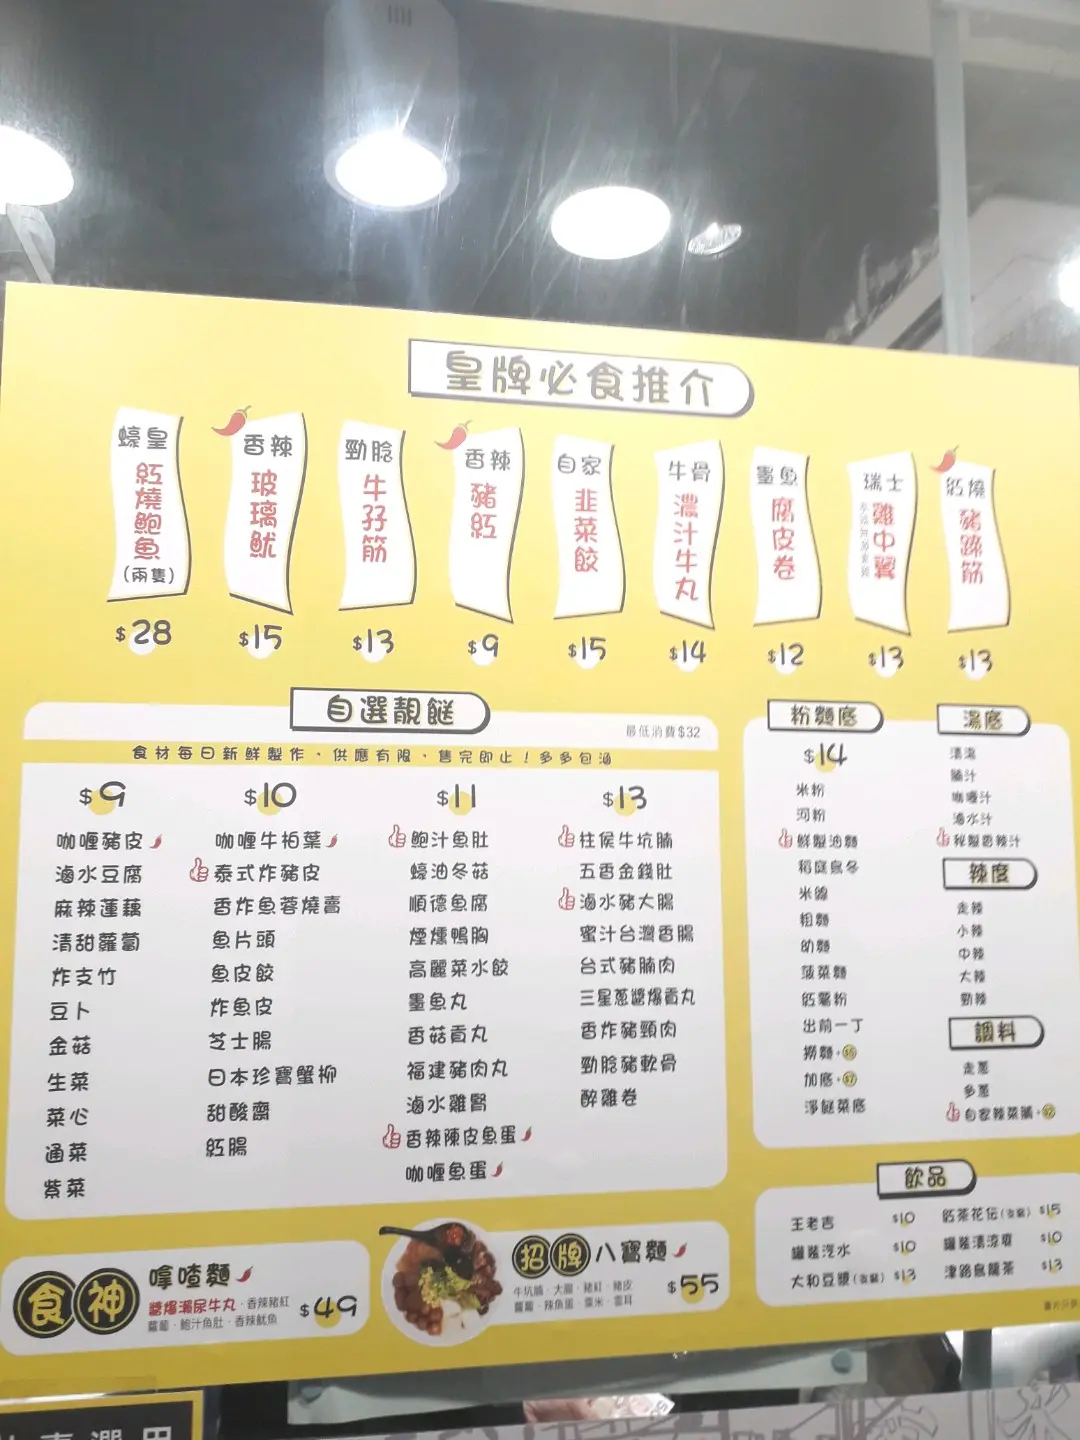 皇牌必食推介
蠔皇
紅燒鮑魚
(兩隻)
$28
香辣
玻璃魷
$15
勁脸
牛孖筋
$13
香辣
豬紅
$9
自家
韭菜餃
$15
牛骨
濃汁牛丸
$14
墨魚
腐皮卷
$12
瑞士
雞中翼
$13
紅燒
豬蹄筋
$13
自選靚餸
最低消費$32
食材每日新鮮製作,供應有限,售完即止!多多包涵
$9
咖喱豬皮
滷水豆腐
麻辣蓮藕
清甜蘿蔔
炸支竹
豆卜
金菇
生菜
菜心
通菜
紫菜
$10
咖喱牛柏葉
泰式炸豬皮
香炸魚蓉燒賣
魚片頭
魚皮餃
炸魚皮
芝士腸
日本珍寶蟹柳
甜酸齋
紅腸
$11
鮑汁魚肚
蠔油冬菇
順德魚腐
煙燻鴨胸
高麗菜水餃
墨魚丸
香菇貢丸
福建豬肉丸
滷水雞腎
香辣陳皮魚蛋
咖喱魚蛋
$13
柱侯牛坑腩
五香金錢肚
滷水豬大腸
蜜汁台灣香腸
台式豬腩肉
三星蔥醬爆貢丸
香炸豬頸肉
勁脸豬軟骨
醉雞卷
粉麵底
$14
米粉
河粉
鮮製油麵
稻庭烏冬
米線
粗麵
幼麵
菠菜麵
紅薯粉
出前一丁
撈麵+$5
加底+$7
淨餸菜底
湯底
清湯
腩汁
咖喱汁
滷水汁
秘製香辣汁
辣度
走辣
小辣
中辣
大辣
勁辣
調料
走蔥
多蔥
自家辣菜脯+$2
飲品
王老吉 $10
罐裝汽水 $10
大和豆漿(支裝) $13
紅茶花伝(支裝) $15
罐裝清涼爽 $10
津路烏龍茶 $13
食神
嗱喳麵
醬爆瀨尿牛丸·香辣豬紅
蘿蔔·鮑汁魚肚·香辣魷魚
$49
招牌八寶麵
牛坑腩·大腸·豬紅·豬皮
蘿蔔·辣魚蛋·粟米·雲耳
$55